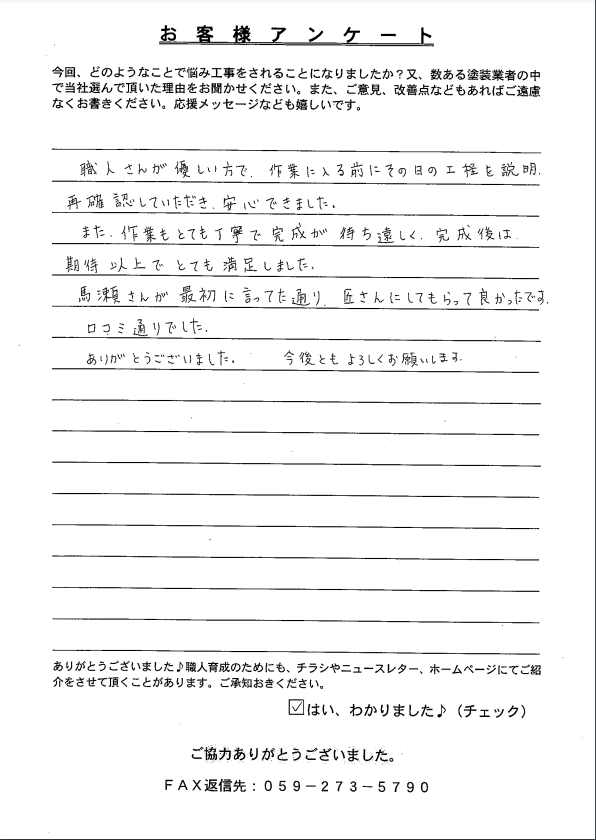 お客様アンケート
今回、どのようなことで悩み工事をされることになりましたか？又、数ある塗装業者の中
で当社選んで頂いた理由をお聞かせください。また、ご意見、改善点などもあればご遠慮
なくお書きください。応援メッセージなども嬉しいです。
職人さんが優しい方で、作業に入る前にその日の工程を説明、
再確認していただき、安心できました。
また、作業もとても丁寧で完成が待ち遠しく、完成後は
期待以上でとても満足しました。
馬瀬さんが最初に言ってた通り、匠さんにしてもらって良かったです。
口コミ通りでした。
ありがとうございました。 今後ともよろしくお願いします。
ありがとうございました♪職人育成のためにも、チラシやニュースレター、ホームページにてご紹
介をさせて頂くことがあります。ご承知おきください。
☑はい、わかりました♪（チェック）
ご協力ありがとうございました。
ＦＡＸ返信先：０５９－２７３－５７９０